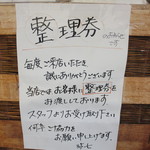 整理券
のおねがい
です
毎度ご来店いただき
誠にありがとうございます
当店では お客様に整理券を
お渡ししております
スタッフよりお受け取り下さい
何卒ご協力を
お願い申し上げます